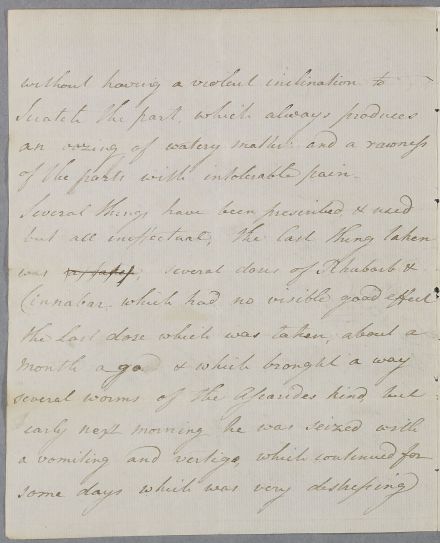 without having a violent inclination to
Scratch the part, which always produces
an oozing of watery matter and a rawness
of the parts with intolerable pain.
Several things have been presented, & used
but all ineffectual, The last thing taken
was several doses of Rhubarb &
Cinnabar which had no visible good effect
the last dose which was taken, about a
month a go & which brought a way
several worms of the Ascarides kind but
early next morning he was seized with
a vomiting and vertigo, which continued for
some days which was very distressing